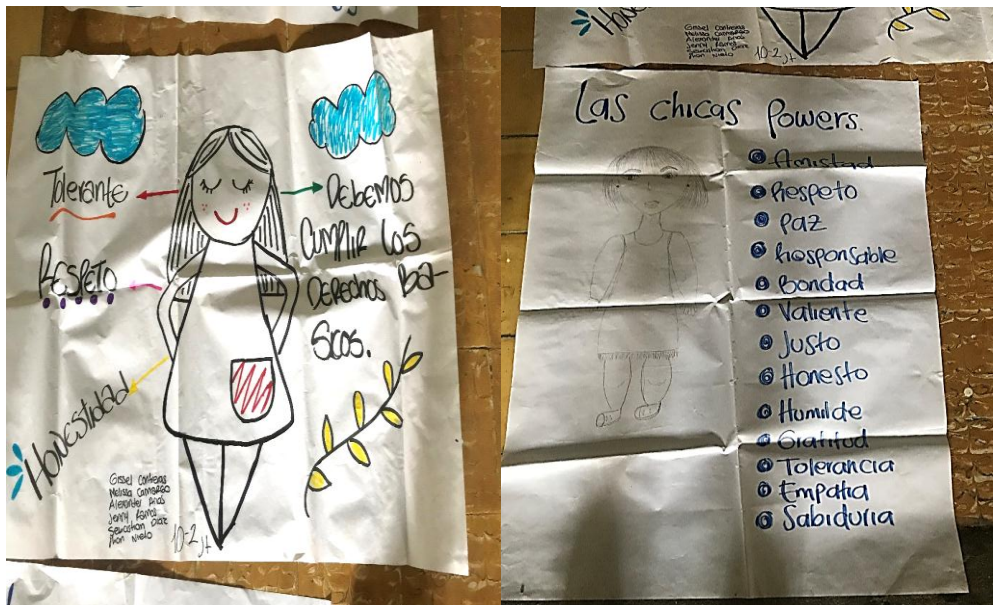 Tolerante
DEBEMOS
CUMPLIR LOS
DERECHOS BA-
SICOS.
RESPETO
HONESTIDAD
Gissel Contreras
Melissa Camargo
Alexander Arias
Jenny Ramos
Sebastian Diaz
Jhon Nieto
10-2 Jt
Gissel Contreras
Melissa Camargo
Alexander Arias
Jenny Ramos
Sebastian Diaz
Jhon Nieto
10-2 Jt
Las chicas Powers.
Amistad
Respeto
Paz
Responsable
Bondad
Valiente
Justo
Honesto
Humilde
Gratitud
Tolerancia
Empatia
Sabiduria